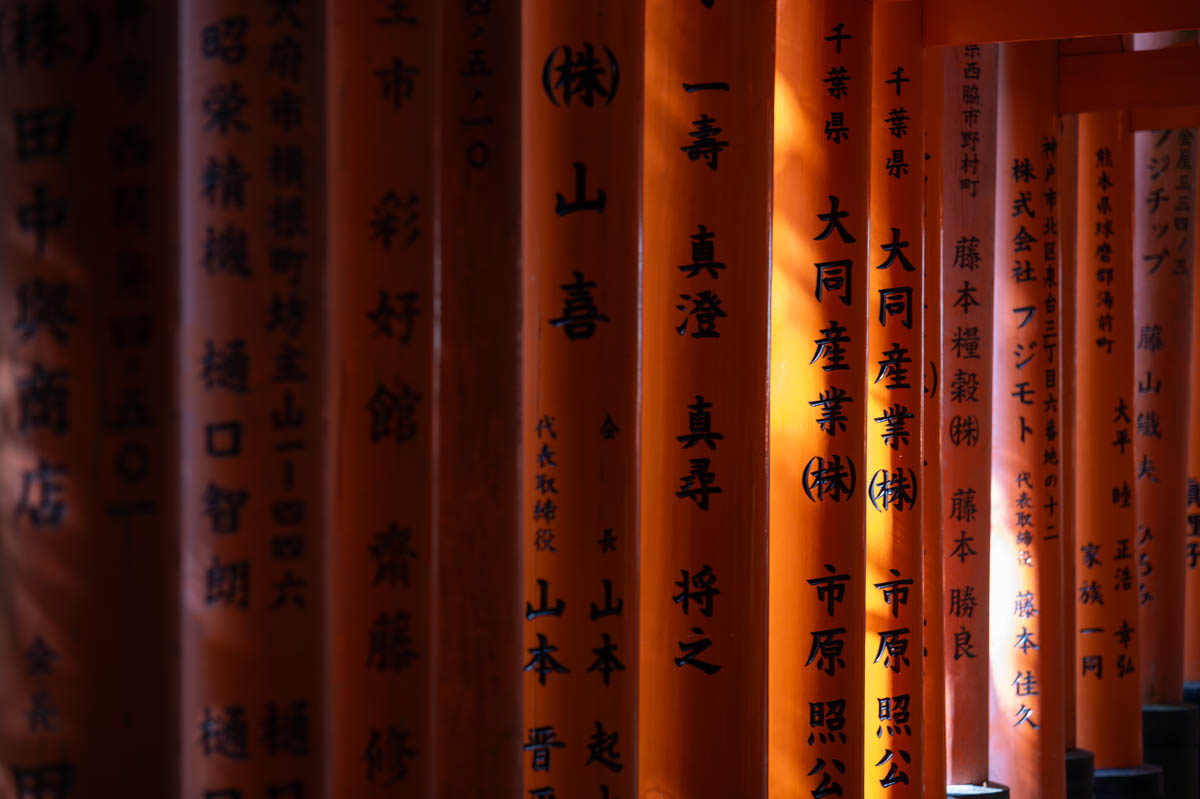 金屋三三四ノ三
フジチップ 藤山鐵夫
熊本県球磨郡湯前町
大平 睦 正浩 幸弘
家族一同
神戸市北区泉台三丁目六番地の十二
株式会社 フジモト 代表取締役 藤本佳久
県西脇市野村町 藤本糧穀㈱ 藤本勝良
千葉県 大同産業㈱ 市原照公
千葉県 大同産業㈱ 市原照公
一壽 真澄 真尋 将之
㈱山喜
会長 山本 起
代表取締役 山本 晋
五、一〇
市 彩好館 齋藤 修
大府市横根町坊主山一ー四四六 樋口
昭栄精機 樋口智朗 樋口
㈱田中興商店 会長 田